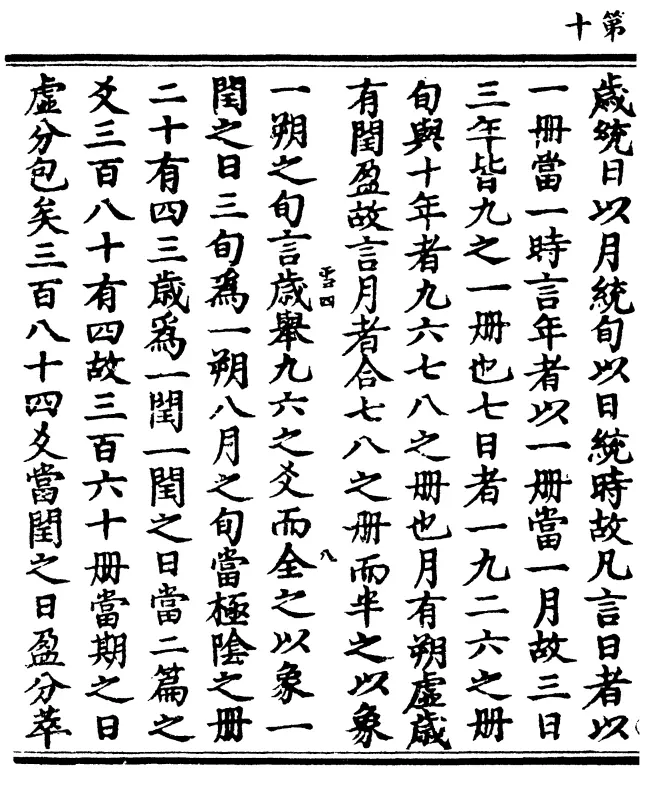 第十
歲統日以月統旬以日統時故凡言日者以
一冊當一時言年者以一冊當一月故三日
三年皆九之一冊也七日者一九二六之冊
旬與十年者九六七八之冊也月有朔虛歲
有閏盈故言月者合七八之冊而半之以象
一朔之旬言歲舉九六之爻而全之以象一
閏之日三旬爲一朔八月之旬當極陰之冊
二十有四三歲爲一閏一閏之日當二篇之
爻三百八十有四故三百六十冊當期之日
虛分包矣三百八十四爻當閏之日盈分萃